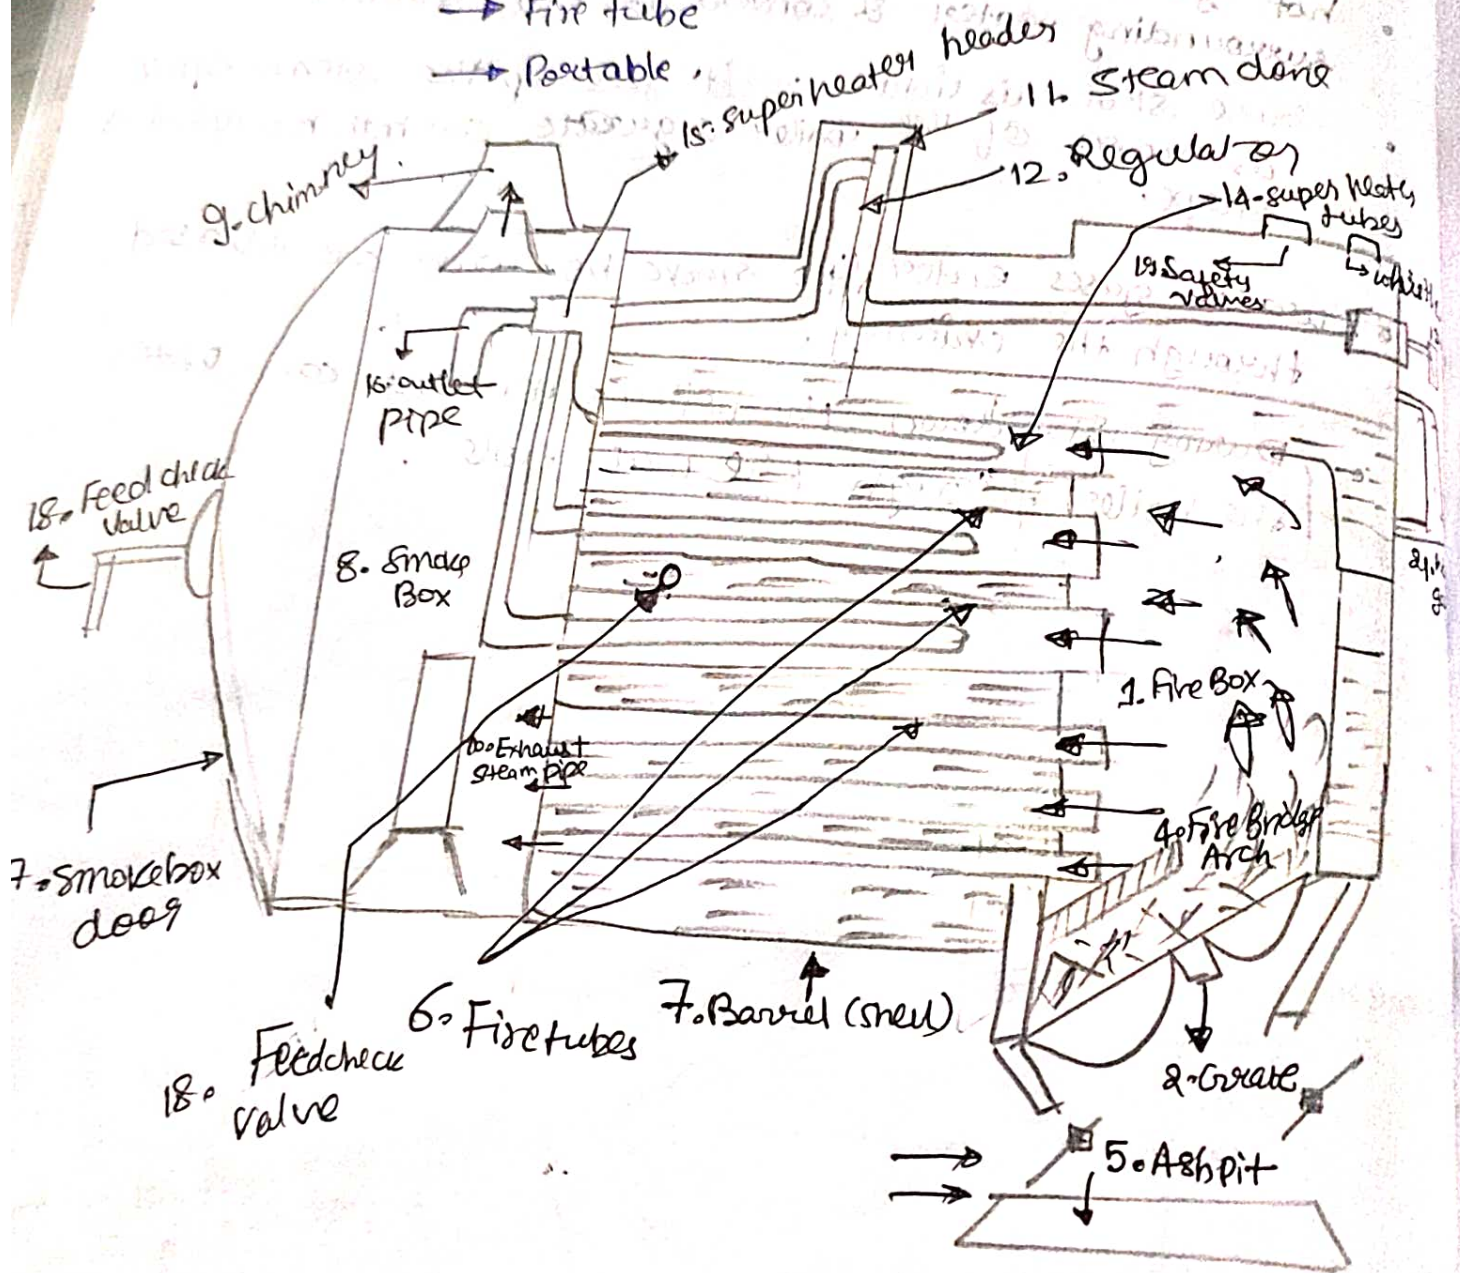 → Fire tube
→ Portable.
15. superheater header
11. Steam dome
12. Regulator
14-super heater
tubes
9. chimney.
19 Safety
valves
16. outlet
pipe
18. Feed check
valve
8. Smoke
Box
1. Fire Box
10. Exhaust
steam pipe
4. Fire Bridge
Arch
7. smokebox
door
6. Fire tubes
7. Barrel (shell)
18. Feedcheck
valve
2. Grate
5. Ash pit